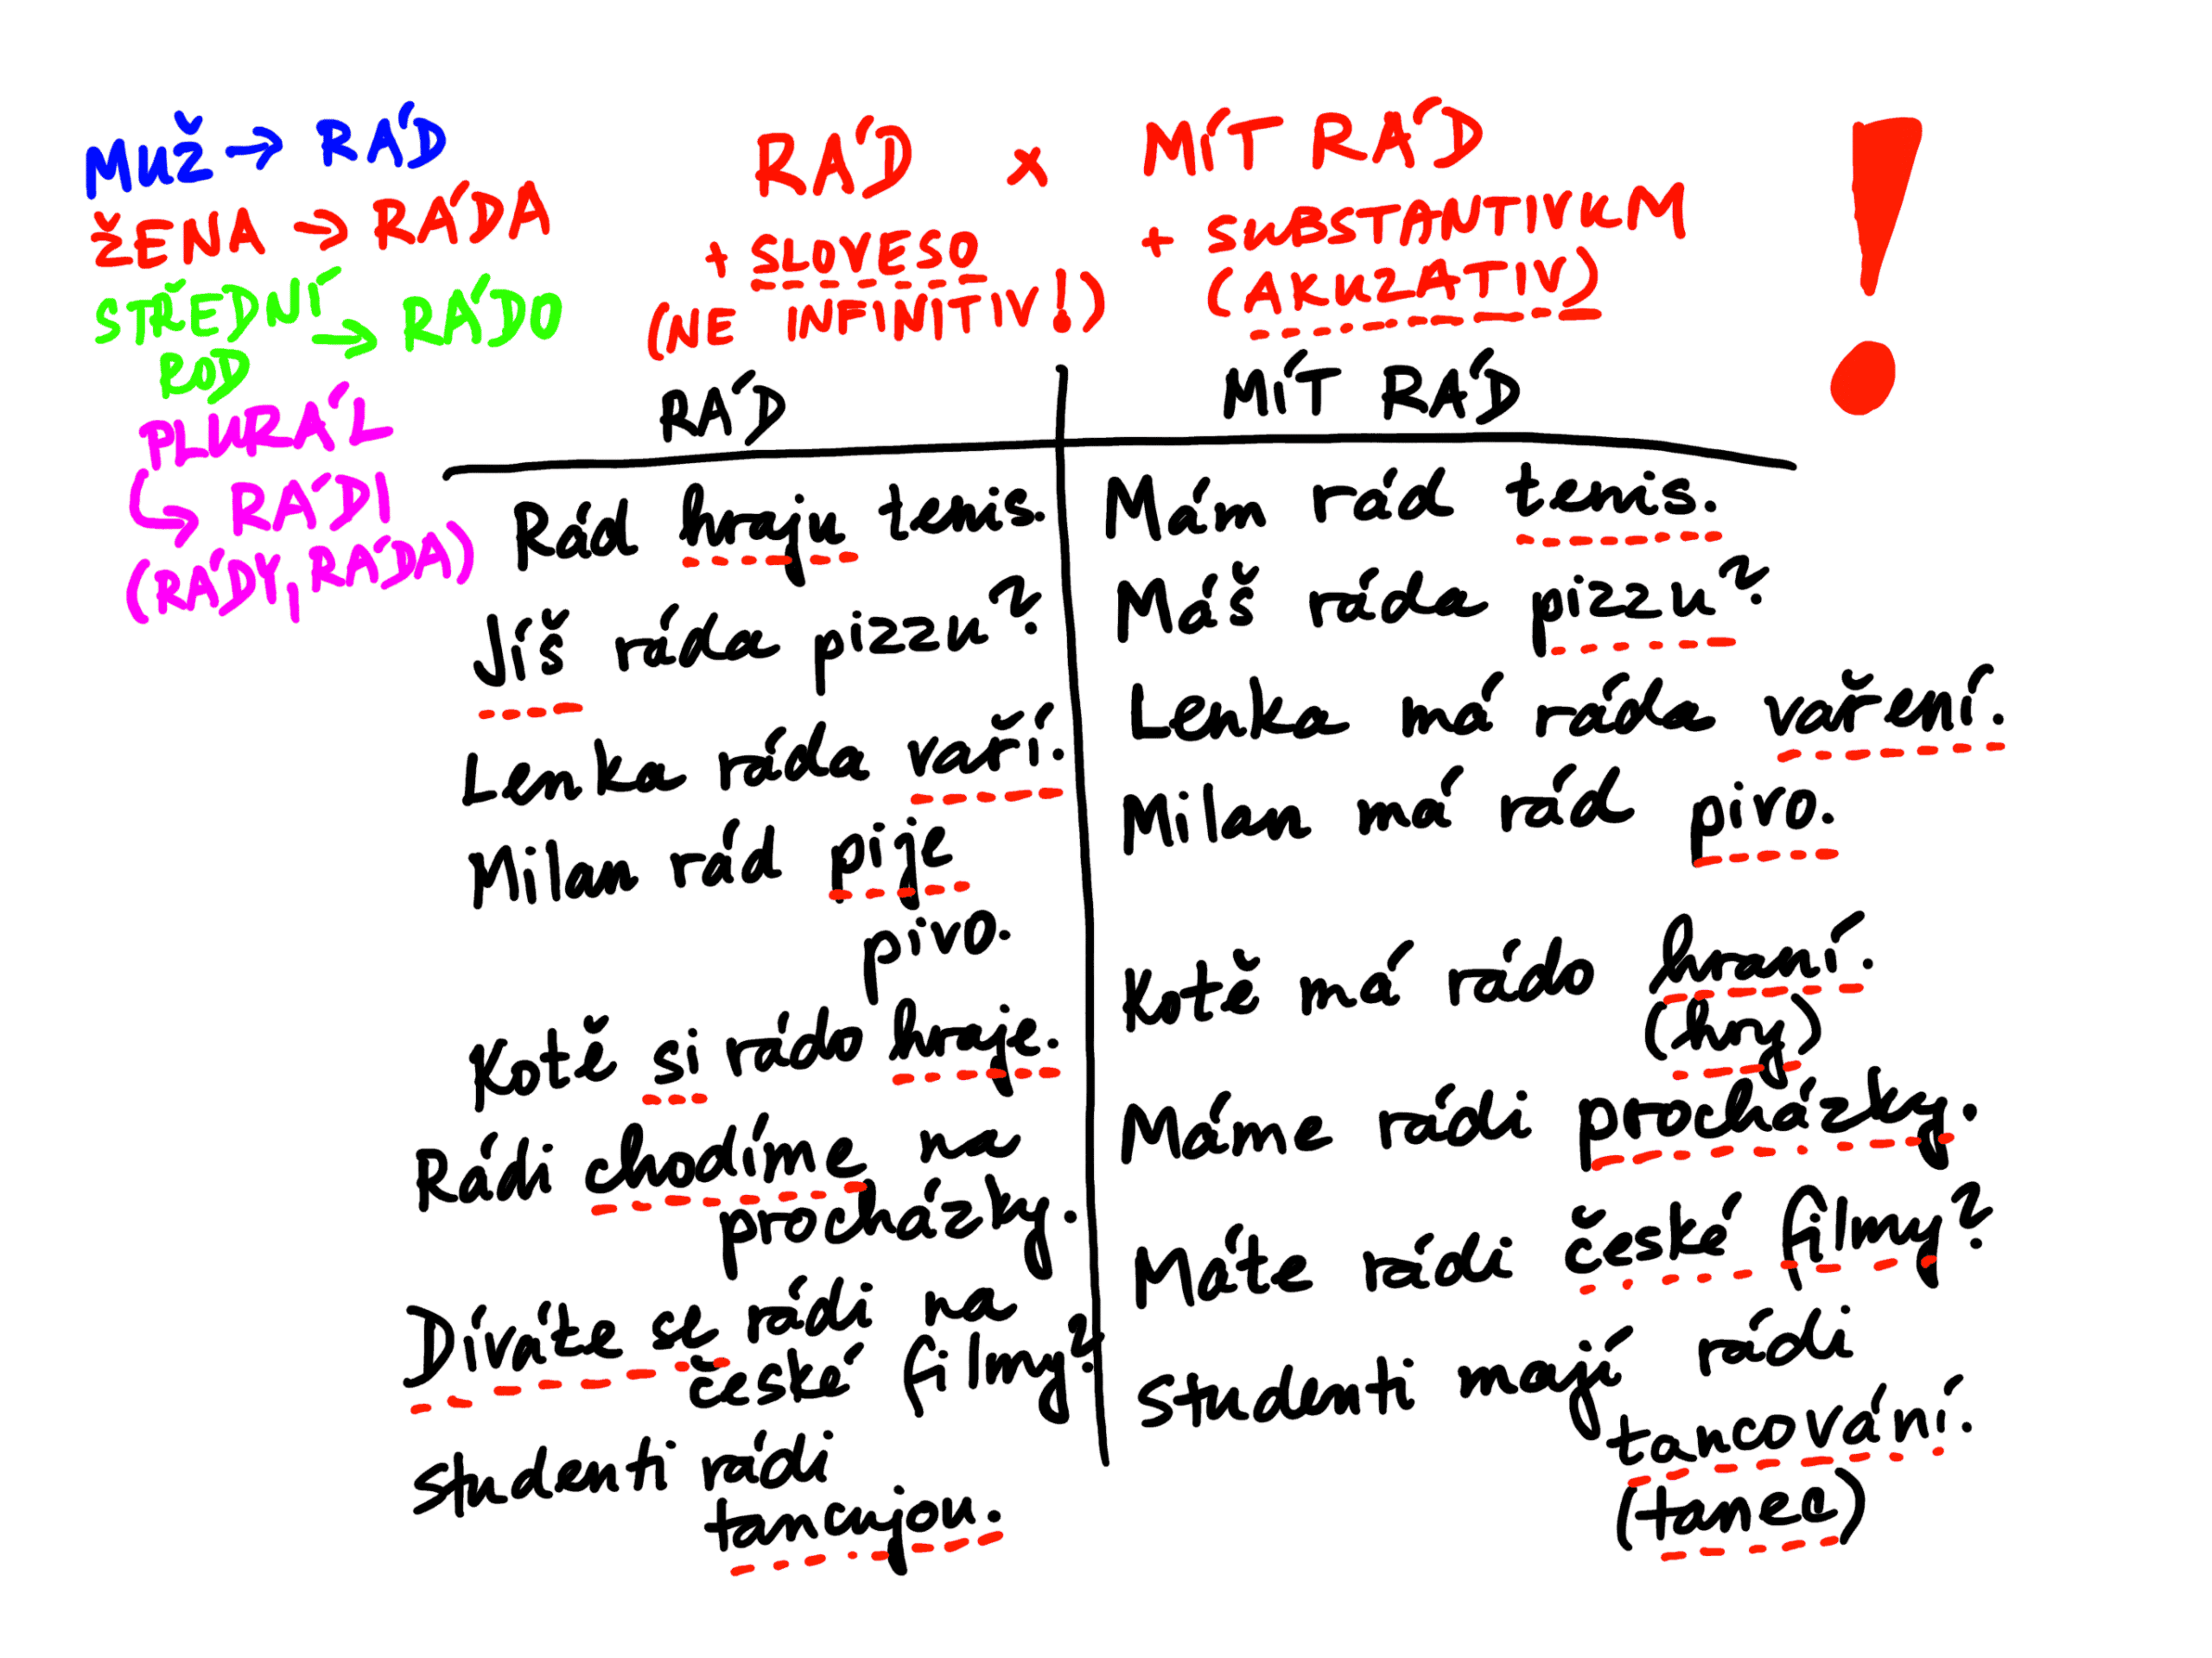 MUŽ → RÁD
ŽENA → RÁDA
STŘEDNÍ → RÁDO
ROD
PLURÁL
↳ RÁDI
(RÁDY, RÁDA)
RÁD x MÍT RÁD
+ SLOVESO
(NE INFINITIV!)
+ SUBSTANTIVUM
(AKUZATIV)
!
RÁD
Rád hraju tenis.
Jíš ráda pizzu?
Lenka ráda vaří.
Milan rád pije
pivo.
Kotě si rádo hraje.
Rádi chodíme na
procházky.
Díváte se rádi na
české filmy?
Studenti rádi
tancujou.
MÍT RÁD
Mám rád tenis.
Máš ráda pizzu?
Lenka má ráda vaření.
Milan má rád pivo.
Kotě má rádo hraní.
(hry)
Máme rádi procházky.
Máte rádi české filmy?
Studenti mají rádi
tancování.
(tanec)